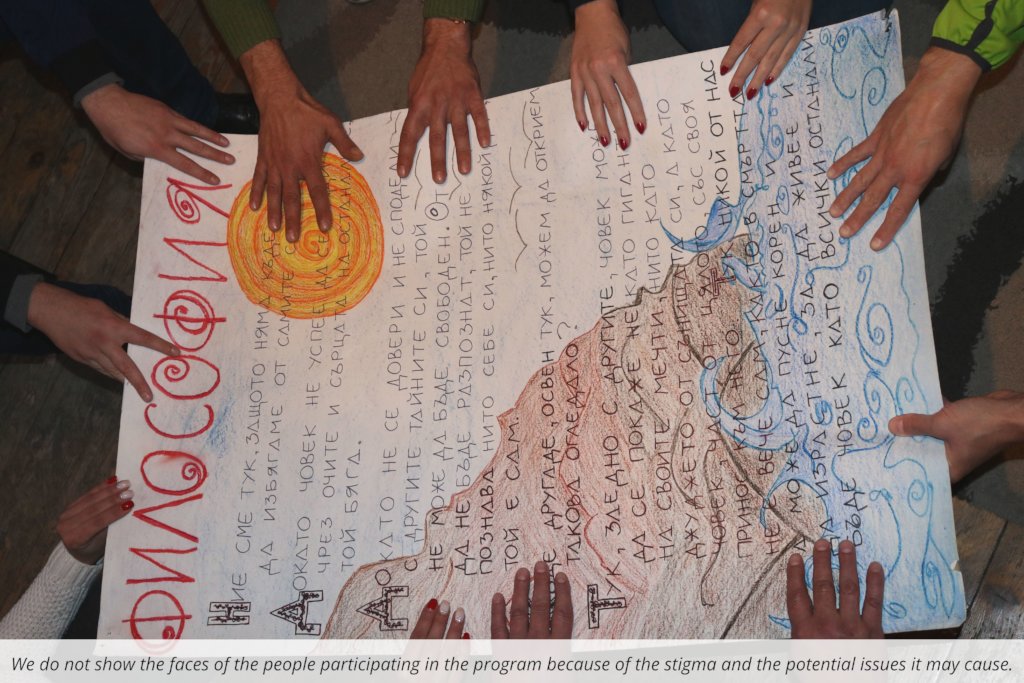 ФИЛОСОФИЯ
НИЕ СМЕ ТУК, ЗАЩОТО НЯМА КЪДЕ
ДА ИЗБЯГАМЕ ОТ САМИТЕ
ДОКАТО ЧОВЕК НЕ УСПЕЕ ДА СЕ
ЧРЕЗ ОЧИТЕ И СЪРЦАТА НА
ТОЙ БЯГА.
ДОКАТО НЕ СЕ ДОВЕРИ И НЕ СПОДЕЛИ
С ДРУГИТЕ ТАЙНИТЕ СИ, ТОЙ
НЕ МОЖЕ ДА БЪДЕ СВОБОДЕН.
ДА НЕ БЪДЕ РАЗПОЗНАТ, ТОЙ НЕ
ПОЗНАВА НИТО СЕБЕ СИ, НИТО НЯКОЙ
ТОЙ Е САМ.
ДРУГАДЕ, ОСВЕН ТУК, МОЖЕМ ДА ОТКРИЕМ
ТАКОВА ОГЛЕДАЛО?
ТУК, ЗАЕДНО С ДРУГИТЕ, ЧОВЕК
ДА СЕ ПОКАЖЕ НЕ КАТО ГИГАНТ
НА СВОИТЕ МЕЧТИ, НИТО КАТО
ДЖУДЖЕТО ОТ СЪНИЩАТА СИ, А КАТО
ЧОВЕК, ЧАСТ ОТ ЦЯЛО, СЪС СВОЯ
ПРИНОС КЪМ НЕГО. НИКОЙ ОТ НАС
НЕ Е ВЕЧЕ САМ, КАКТО В СМЪРТТА
МОЖЕ ДА ПУСНЕ КОРЕН И
ДА ИЗРАСТНЕ, ЗА ДА ЖИВЕЕ И
БЪДЕ ЧОВЕК КАТО ВСИЧКИ ОСТАНАЛИ
We do not show the faces of the people participating in the program because of the stigma and the potential issues it may cause.